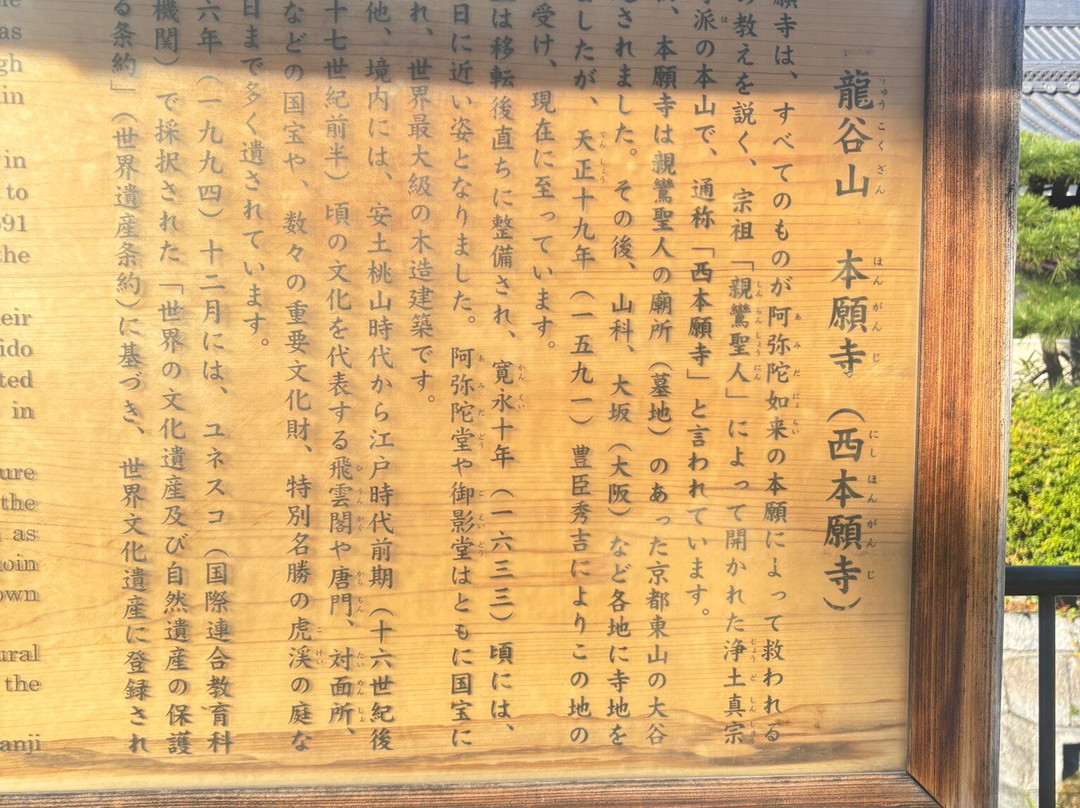 龍谷山 本願寺（西本願寺）
願寺は、すべてのものが阿弥陀如来の本願によって救われる
の教えを説く、宗祖「親鸞聖人」によって開かれた浄土真宗
派の本山で、通称「西本願寺」と言われています。
、本願寺は親鸞聖人の廟所（墓地）のあった京都東山の大谷
されました。その後、山科、大坂（大阪）など各地に寺地を
ましたが、天正十九年（一五九一）豊臣秀吉によりこの地の
受け、現在に至っています。
は移転後直ちに整備され、寛永十年（一六三三）頃には、
日に近い姿となりました。阿弥陀堂や御影堂はともに国宝に
れ、世界最大級の木造建築です。
他、境内には、安土桃山時代から江戸時代前期（十六世紀後
十七世紀前半）頃の文化を代表する飛雲閣や唐門、対面所、
などの国宝や、数々の重要文化財、特別名勝の虎渓の庭な
日まで多く遺されています。
六年（一九九四）十二月には、ユネスコ（国際連合教育科
機関）で採択された「世界の文化遺産及び自然遺産の保護
る条約」（世界遺産条約）に基づき、世界文化遺産に登録され
as
gh
in
in
to
591
the
eir
ido
ted
in
ure
the
as
oin
own
ural
the
anji